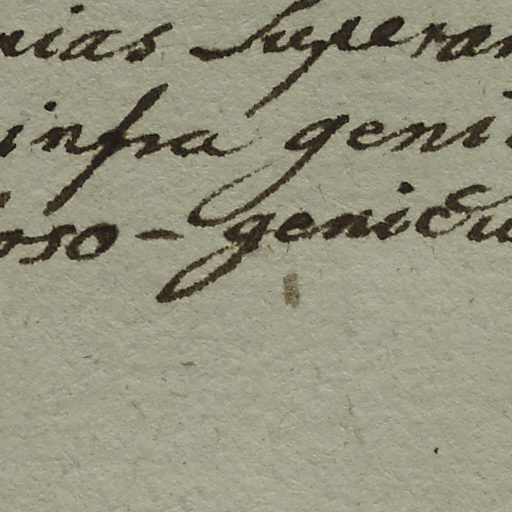 nias superan
infra geni
oso-genicu